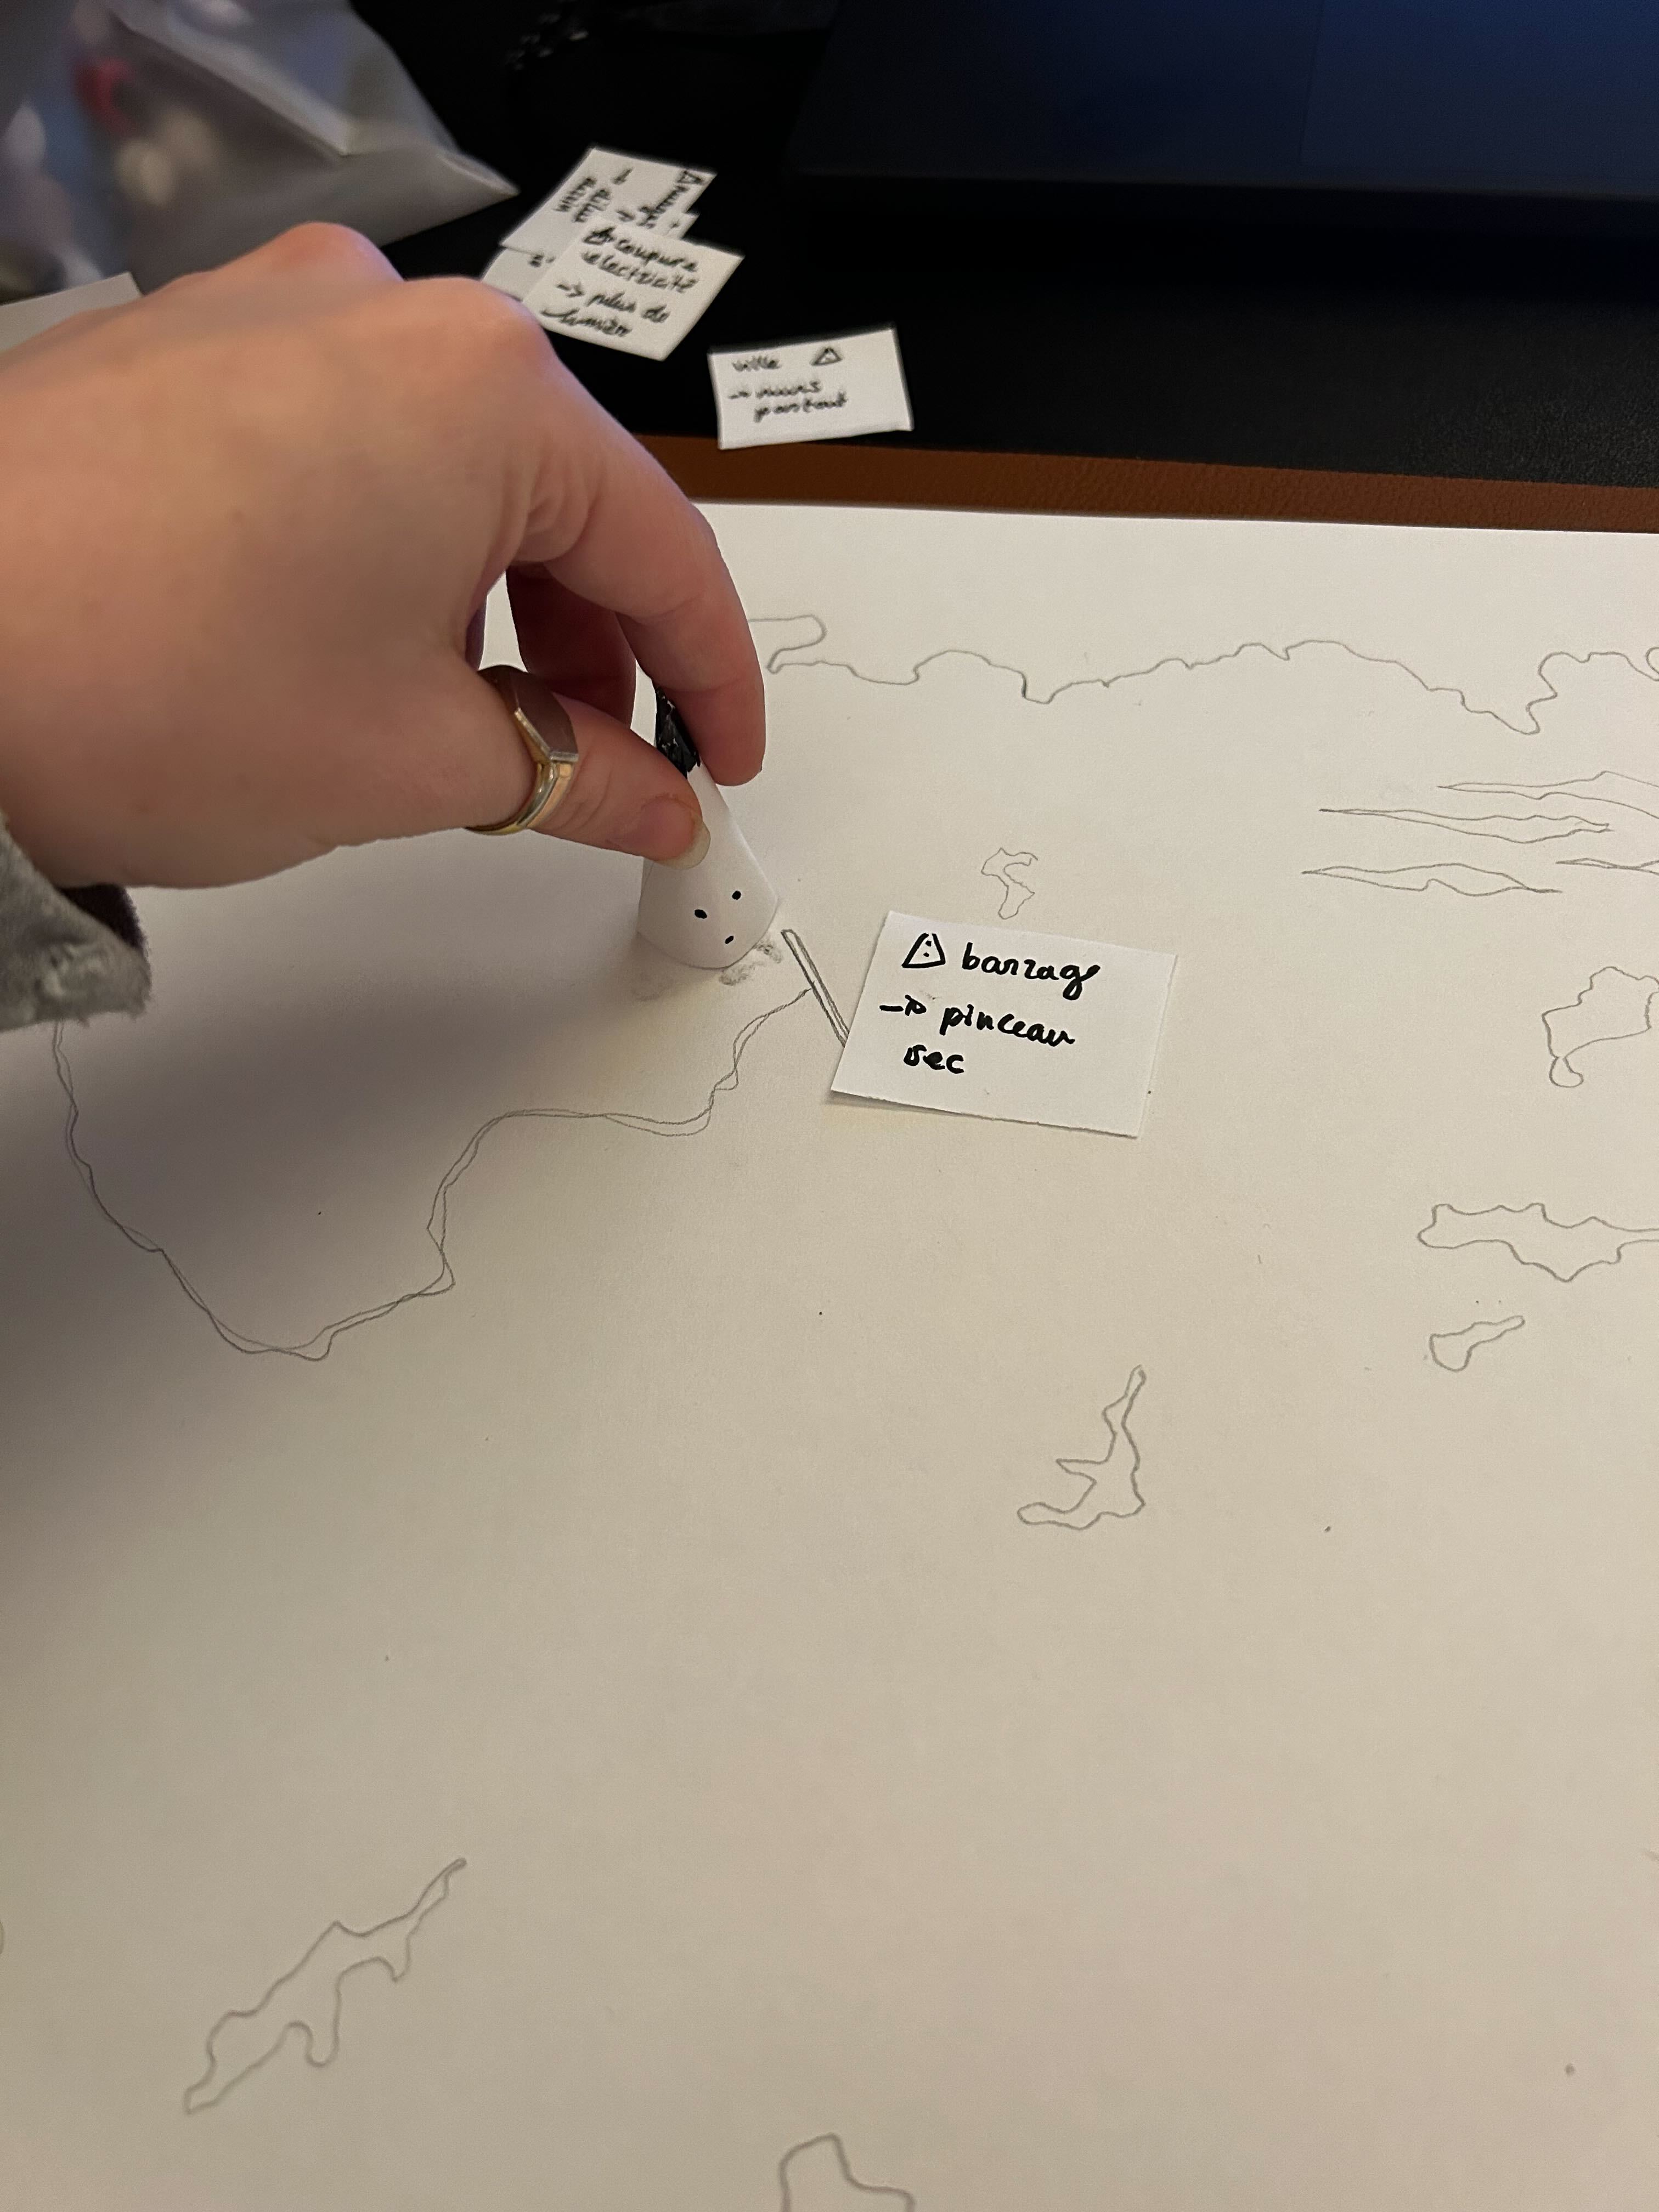 coupure
electricité
-> plus de
lumière
ville ⚠
-> murs
partout
⚠ barrage
-> pinceau
sec